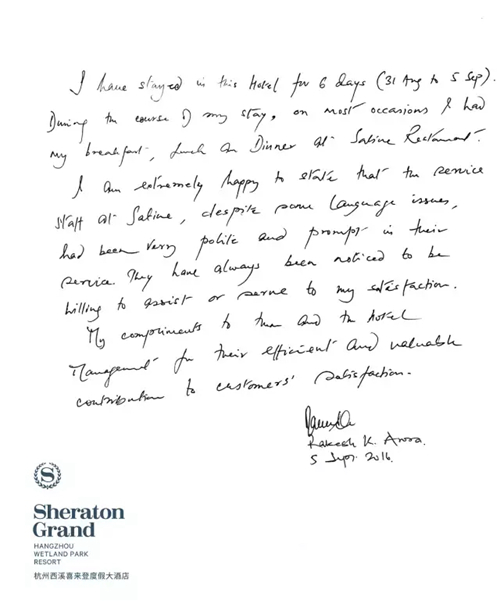 I have stayed in this Hotel for 6 days (31 Aug to 5 Sep).
During the course of my stay, on most occasions I had
my breakfast, lunch on Dinner at Sabine Restaurant.
I am extremely happy to state that the service
staff at Sabine, despite some language issues,
had been very polite and prompt in their
service. They have always been noticed to be
willing to assist or serve to my satisfaction.
My compliments to them and the hotel
Management for their efficient and valuable
contribution to customers' satisfaction.
Rakesh K. Arora.
5 Sept. 2016.
S
Sheraton
Grand
HANGZHOU
WETLAND PARK
RESORT
杭州西溪喜来登度假大酒店